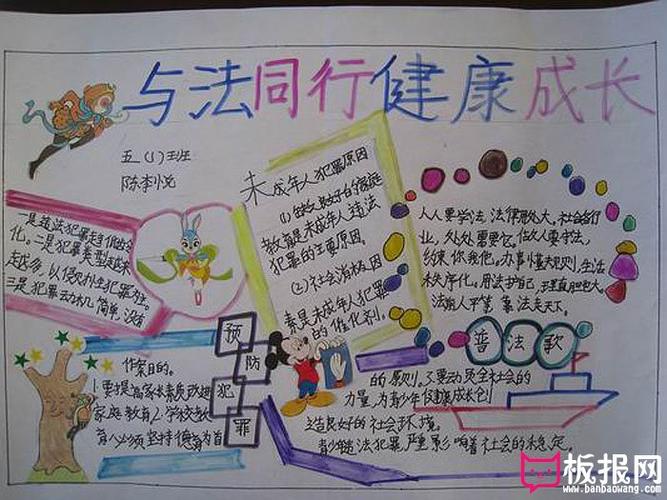 与法同行健康成长
五(1)班
陈李悦
一是违法犯罪走
化。二是犯罪类型越来
越多，以侵财性犯罪为主。
三是犯罪动机简单，没有
未成年人犯罪原因
教育是未成年人违法
犯罪的主要原因。
(2)社会消极因
素是未成年人犯罪
的催化剂。
人人要学法，法律
业，处处需要它。做人要守法，
约束你我他。办事懂规则，生活
秩序化。用法护自己，理直胆也大。
法前人平等，靠法走天下。
普法歌
预防犯罪
作案目的。
1.要提高家长素质改进
家庭教育。2.学校教
育必须坚持德育为首
的原则。3.要动员全社会的
力量，为青少年健康成长创
造良好的社会环境。
青少年违法犯罪，严重影响着社会的稳定。
板报网
www.banbaowang.com